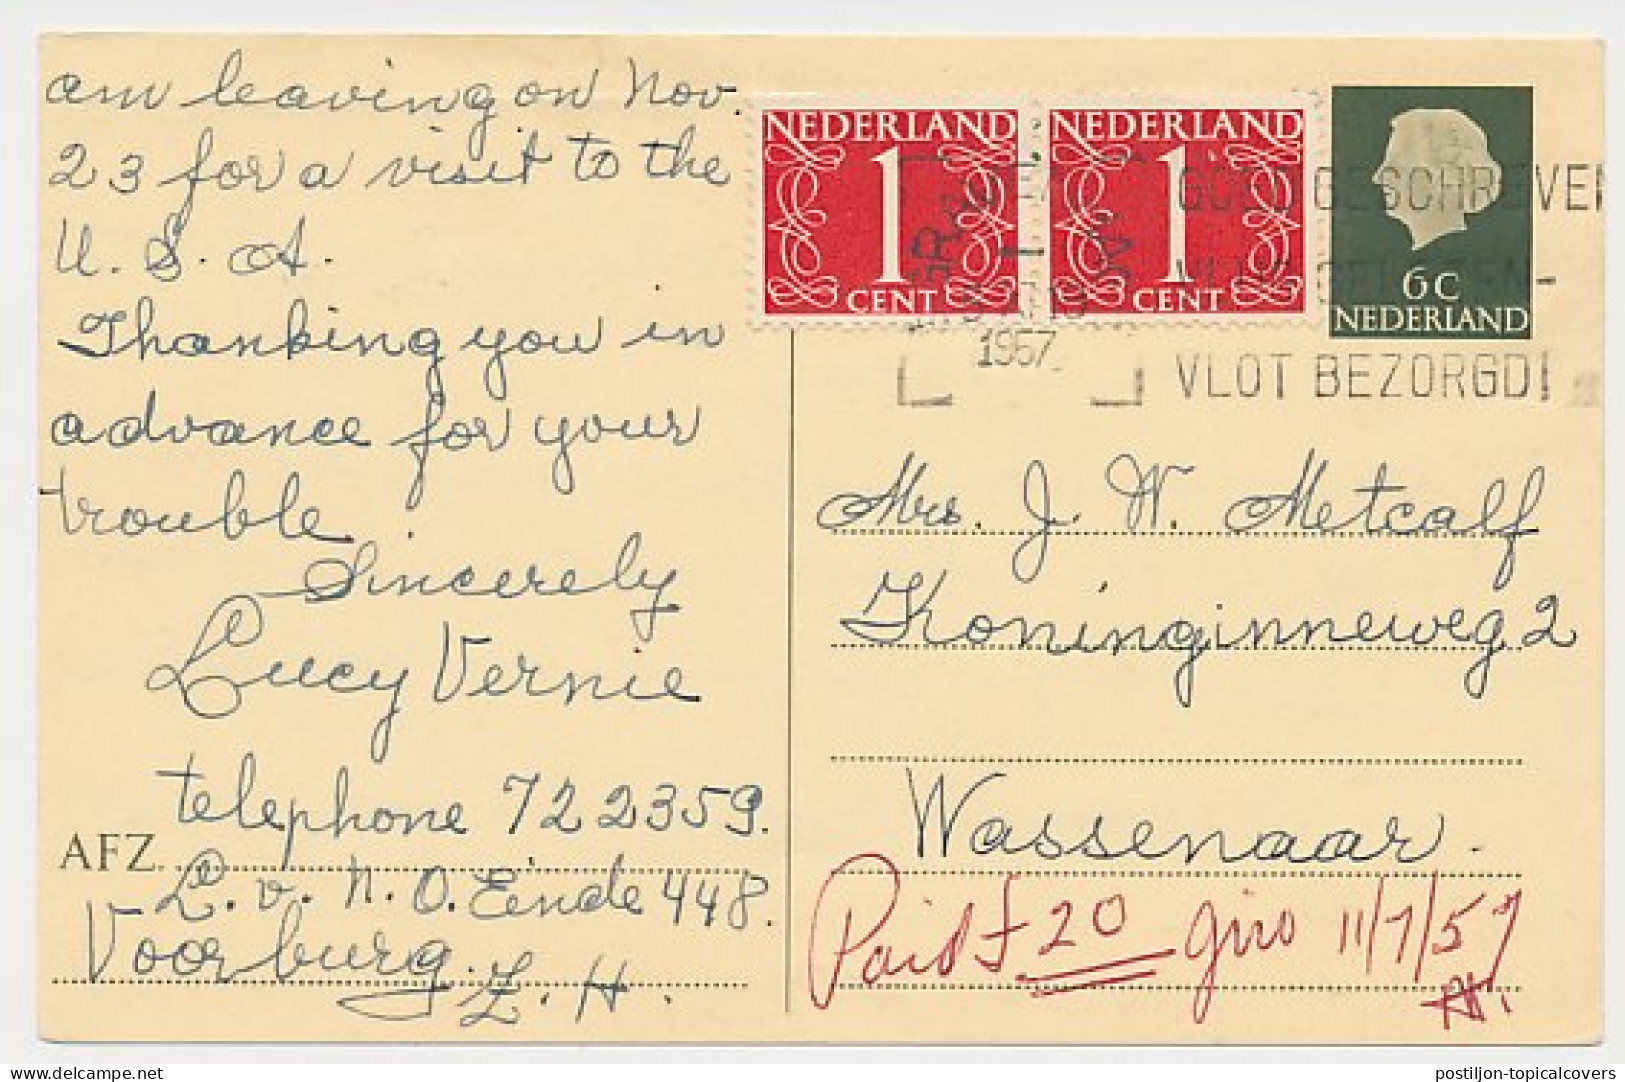 am leaving on Nov.
23 for a visit to the
U. S. A.
Thanking you in
advance for your
trouble.
Sincerely
Lucy Vernie
telephone 722359.
AFZ.
L. v. N. O. Einde 448.
Voorburg.
Z. H.
NEDERLAND
1
CENT
NEDERLAND
1
CENT
6 C
NEDERLAND
1957
GOED GESCHREVEN
VLOT BEZORGD!
Mrs. J. W. Metcalf
Koninginneweg 2
Wassenaar.
Paid f 20 giro 11/7/57
postiljon-topicalcovers
delcampe.net